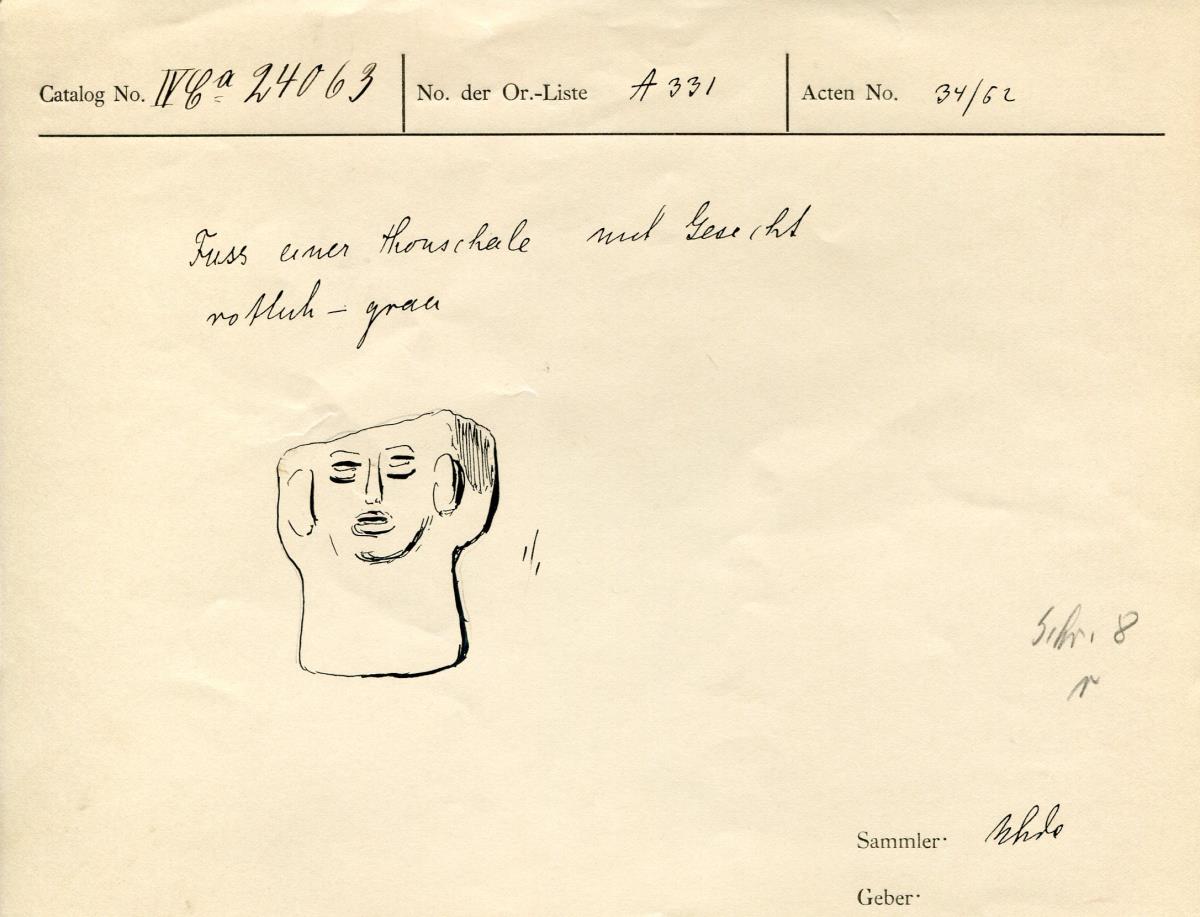 Catalog No. IV Ca 24063 No. der Or.-Liste A 331 Acten No. 34/62
Fuss einer Thonschale mit Gesicht
rötlich – grau
1/1
Schr. 8
r
Sammler: Uhde
Geber: